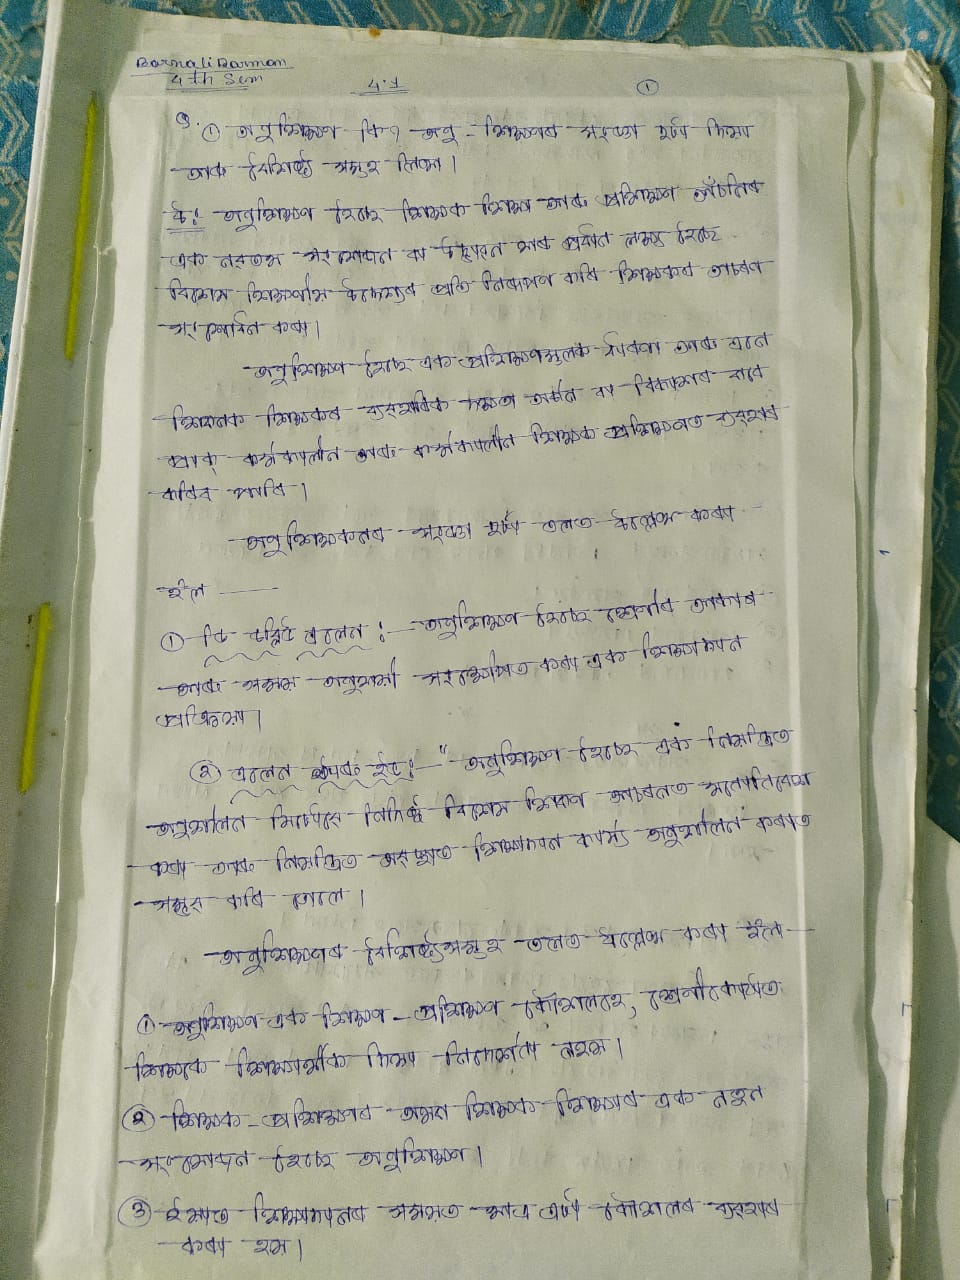 Barnali Barman
4th Sem
4.1
①
Q. ① অনুশিক্ষণ কি? অনু-শিক্ষণৰ সংজ্ঞা দুটা দিয়া
আৰু বৈশিষ্ট্য সমূহ লিখা।
উঃ অনুশিক্ষণ হৈছে শিক্ষক শিক্ষা আৰু প্ৰশিক্ষণ আঁচনিৰ
এক নৱতম সংযোজন বা উদ্ভাৱন যাৰ প্ৰধান লক্ষ্য হৈছে
বিশেষ শিক্ষণীয় উদ্দেশ্যৰ প্ৰতি নিৰূপণ কৰি শিক্ষকৰ আচৰণ
সংশোধন কৰা।
অনুশিক্ষণ হৈছে এক প্ৰশিক্ষণমূলক ধাৰণা আৰু এনে
শিক্ষানক শিক্ষকৰ ব্যৱসায়িক দক্ষতা অৰ্জন বা বিকাশৰ বাবে
প্ৰাক্ কৰ্মকালীন আৰু কৰ্মকালীন শিক্ষক প্ৰশিক্ষণত ব্যৱহাৰ
কৰিব পাৰি।
অনুশিক্ষকনৰ সংজ্ঞা দুটা তলত উল্লেখ কৰা
হ'ল —
① বি কে এলেন :— অনুশিক্ষণ হৈছে শ্ৰেণীৰ আকাৰ
আৰু সময় অনুযায়ী সংক্ষেপিত কৰা এক শিক্ষাদান
প্ৰক্ৰিয়া।
② এলেন আৰু ইভ :— "অনুশিক্ষণ হৈছে এক নিয়ন্ত্ৰিত
অনুশীলন যিটোৱে নিৰ্দিষ্ট বিশেষ শিক্ষণ আচৰণত মনোনিবেশ
কৰা আৰু নিয়ন্ত্ৰিত অৱস্থাত শিক্ষাদান কাৰ্য্য অনুশীলন কৰাত
সহায় কৰি তোলে।
অনুশিক্ষণৰ বৈশিষ্ট্যসমূহ তলত উল্লেখ কৰা হ'ল —
① অনুশিক্ষণ এক শিক্ষণ-প্ৰশিক্ষণ কৌশলহে, শ্ৰেণীকোঠাত
শিক্ষকে শিক্ষাৰ্থীক দিয়া নিৰ্দেশনা নহয়।
② শিক্ষক-প্ৰশিক্ষণৰ অথবা শিক্ষক-শিক্ষণৰ এক নতুন
সংযোজন হৈছে অনুশিক্ষণ।
③ ইয়াত শিক্ষাদানৰ সময়ত মাত্ৰ এটা কৌশলৰ ব্যৱহাৰ
কৰা হয়।